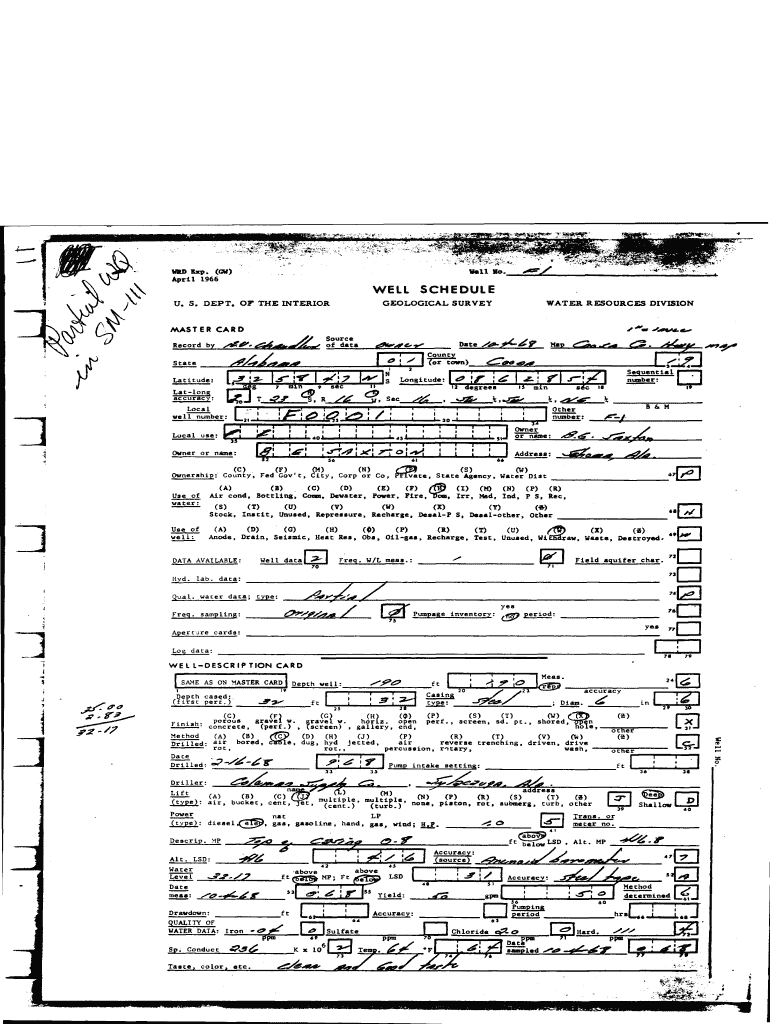 Partial WQ
in SM-111
WRD Exp. (GW)
April 1966
Well No. F-1
WELL SCHEDULE
U. S. DEPT. OF THE INTERIOR GEOLOGICAL SURVEY WATER RESOURCES DIVISION
MASTER CARD
Record by Source of data owner Date 10-4-68 Map Coosa Co. Hwy map
State Alabama 01 County (or town) Coosa 19
Latitude: 32 58 47 N S Longitude: 086 28 54 Sequential number:
degrees min sec
Lat-long accuracy: 2 T 23 S, R 16 Sec 16
B & M
Local well number: F0001 Other number: F-1
Local use: Owner or name: B.E. Saxton
Owner or name: B E SAXTON Address: Ala.
Ownership: (C) (F) (M) (N) (P) (S) (W)
County, Fed Gov't, City, Corp or Co, Private, State Agency, Water Dist P
(A) (B) (C) (D) (E) (F) (H) (I) (M) (N) (P) (R)
Use of water: Air cond, Bottling, Comm, Dewater, Power, Fire, Dom, Irr, Med, Ind, P S, Rec,
(S) (T) (U) (V) (W) (X) (Y)
Stock, Instit, Unused, Repressure, Recharge, Desal-P S, Desal-other, Other
Use of well: (A) (D) (G) (H) (O) (P) (R) (T) (U) (W) (X) (Z)
Anode, Drain, Seismic, Heat Res, Obs, Oil-gas, Recharge, Test, Unused, Withdraw, Waste, Destroyed. W
DATA AVAILABLE: Well data 2 Freq. W/L meas.: Field aquifer char.
Hyd. lab. data:
Qual. water data; type: Partial P
Freq. sampling: Original Pumpage inventory: yes no period:
Aperture cards: yes
Log data:
WELL-DESCRIPTION CARD
SAME AS ON MASTER CARD Depth well: 190 ft 190 Meas. rept accuracy 6
Depth cased: (first perf.) 32 ft 32 Casing type: Steel; Diam. 6 in 6
35.00
2.83
32.17
Finish: (C) porous concrete, (F) gravel w. (perf.), (G) gravel w. (screen), (H) horiz. gallery, (O) open end, (P) perf., (S) screen, (T) sd. pt., (W) shored, (X) open hole, (Z) other X
Method Drilled: (A) air rot, (B) bored, (C) cable, (D) dug, (H) hyd rot., (J) jetted, (P) air percussion, (R) reverse rotary, (T) trenching, (V) driven, (W) drive wash, (Z) other
Date Drilled: 2-16-68 968 Pump intake setting: ft
Driller: Coleman Supply Co. Sylacauga, Ala.
name address
Lift (type): (A) air, (B) bucket, (C) cent, (J) jet, (L) multiple (cent.) (M) multiple, (turb.) (N) none, (P) piston, (R) rot, (S) submerg, (T) turb, (Z) other J Deep Shallow D
Power (type): diesel, elec, nat gas, gasoline, hand, LP gas, wind; H.P. 5 Trans. or meter no.
Descrip. MP Top of casing 0.8 ft above below LSD, Alt. MP 416.8
Alt. LSD: 416 416 Accuracy: (source) Aneroid barometer 7
Water Level 32.17 ft above below MP; Ft above below LSD 31 Accuracy: Steel tape A
Date meas: 10-4-68 068 Yield: 50 gpm 50 Method determined 6
Drawdown: ft Accuracy: Pumping period hrs
QUALITY OF WATER DATA: Iron .04 ppm 0 Sulfate ppm Chloride 2.0 ppm 0 Hard. 111 ppm
Sp. Conduct 236 K x 10⁶ 2 Temp. 64 °F 64 Date sampled 10-4-68 068
Taste, color, etc. clear and Good taste
Well No.